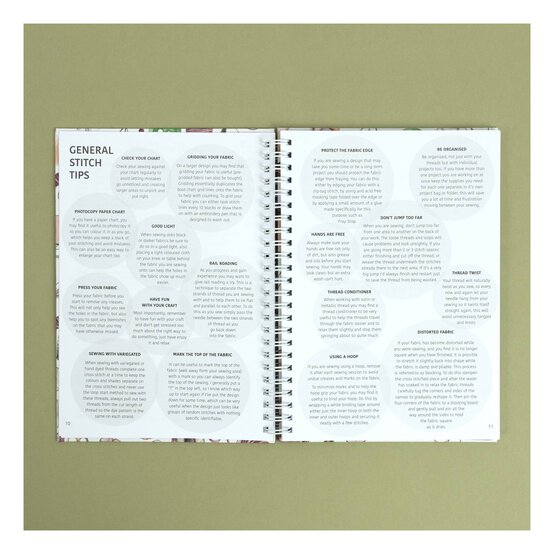 GENERAL
STITCH
TIPS
CHECK YOUR CHART
Check your sewing against
your chart regularly to
avoid letting mistakes
go unnoticed and creating
larger areas to unpick and
put right.
GRIDDING YOUR FABRIC
On a larger design you may find that
gridding your fabric is useful (pre-
gridded fabric can also be bought).
Gridding essentially duplicates the
bold chart grid lines onto your fabric
to help with counting. To grid your
fabric you can either tack stitch
lines every 10 blocks or draw them
on with an embroidery pen that is
designed to wash out.
PHOTOCOPY PAPER CHART
If you have a paper chart, you
may find it useful to photocopy it
so you can colour it in as you go,
which helps you keep a track of
your stitching and avoid mistakes.
This can also be an easy way to
enlarge your chart too.
GOOD LIGHT
When sewing onto black
or darker fabrics be sure to
do so in a good light, also
placing a light coloured cloth
on your knee or table behind
the fabric you are sewing
onto can help the holes in
the fabric show up much
easier.
RAIL ROADING
As you progress and gain
experience you may want to
give rail roading a try. This is a
technique to separate the two
strands of thread you are sewing
with and to help them to lie flat
and parallel to each other. To do
this as you sew simply pass the
needle between the two strands
of thread as you
go back down
into the fabric.
PRESS YOUR FABRIC
Press your fabric before you
start to remove any creases.
This will not only help you see
the holes in the fabric, but also
help you to spot any blemishes
on the fabric that you may
have otherwise missed.
HAVE FUN
WITH YOUR CRAFT
Most importantly, remember
to have fun with your craft
and don't get stressed too
much about the right way to
do something, just have enjoy
it and relax
SEWING WITH VARIEGATED
When sewing with variegated or
hand dyed threads complete one
cross stitch at a time to keep the
colours and shades separate on
the cross stitches and never use
the loop start method to sew with
these threads, always pull out two
threads from the cut length of
thread so the dye pattern is the
same on each strand.
MARK THE TOP OF THE FABRIC
It can be useful to mark the top of the
fabric (well away form your sewing area)
with a mark so you can always identify
the top of the sewing, I generally put a
"T" in the top left, so I know which way
up to start again if I've put the design
down for some time, which can be very
useful when the design just looks like
groups of random stitches with nothing
specific identifiable.
10
PROTECT THE FABRIC EDGE
If you are sewing a design that may
take you some time or be a long term
project you should protect the fabric
edge from fraying. You can do this
either by edging your fabric with a
zig-zag stitch, by using and acid free
masking tape folded over the edge or
by applying a small amount of a glue
made specifically for this
purpose such as
Fray Stop.
BE ORGANISED
Be organised, not just with your
threads but with individual
projects too. If you have more than
one project you are working on at
once keep the supplies you need
for each one separate in it's own
project bag or folder, this will save
you a lot of time and frustration
in moving between your sewing.
HANDS ARE FREE
Always make sure your
hands are free not only
of dirt, but also grease
and oils before you start
sewing. Your hands may
look clean, but an extra
wash can't hurt.
DON'T JUMP TOO FAR
When you are sewing, don't jump too far
from one area to another on the back of
your work. The loose threads and loops will
cause problems and look unsightly. If you
are going more than 2 or 3 stitch spaces
either finishing and cut off the thread, or
weave the thread underneath the stitches
already there to the next area. If it's a very
big jump I'd always finish and restart just
to save the thread from being wasted.
THREAD TWIST
Your thread will naturally
twist as you sew, every
now and again let your
needle hang from your
sewing so it twists itself
straight again, this will
avoid unnecessary tangles
and knots.
THREAD CONDITIONER
When working with satin or
metallic thread you may find that
thread conditioner to be very
useful to help your threads travel
through the fabric easier and to
relax them slightly and stop them
springing about so quite much.
DISTORTED FABRIC
If your fabric has become distorted while
you were sewing, and you find it is no longer
square when you have finished, it is possible
to stretch it slightly back into shape while
the fabric is damp/wet. This process is
referred to as blocking. To do this dampen
the cross stitched piece and after the water
has soaked in to relax the fabric threads
carefully tug the corners and sides of the
canvas to gradually reshape it. Then pin the
four corners of the fabric to a blocking board
and gently pull and pin all the
way around the sides to hold
the fabric square
as it dries.
USING A HOOP
If you are sewing using a hoop, remove
it after each sewing session to avoid
undue creases and marks on the fabric.
To minimise marks and to help the
hoop grip your fabric you may find it
useful to bind your hoop. Do this by
wrapping a white binding tape around
either just the inner hoop or both the
inner and outer hoops and securing it
neatly with a few stitches.
11